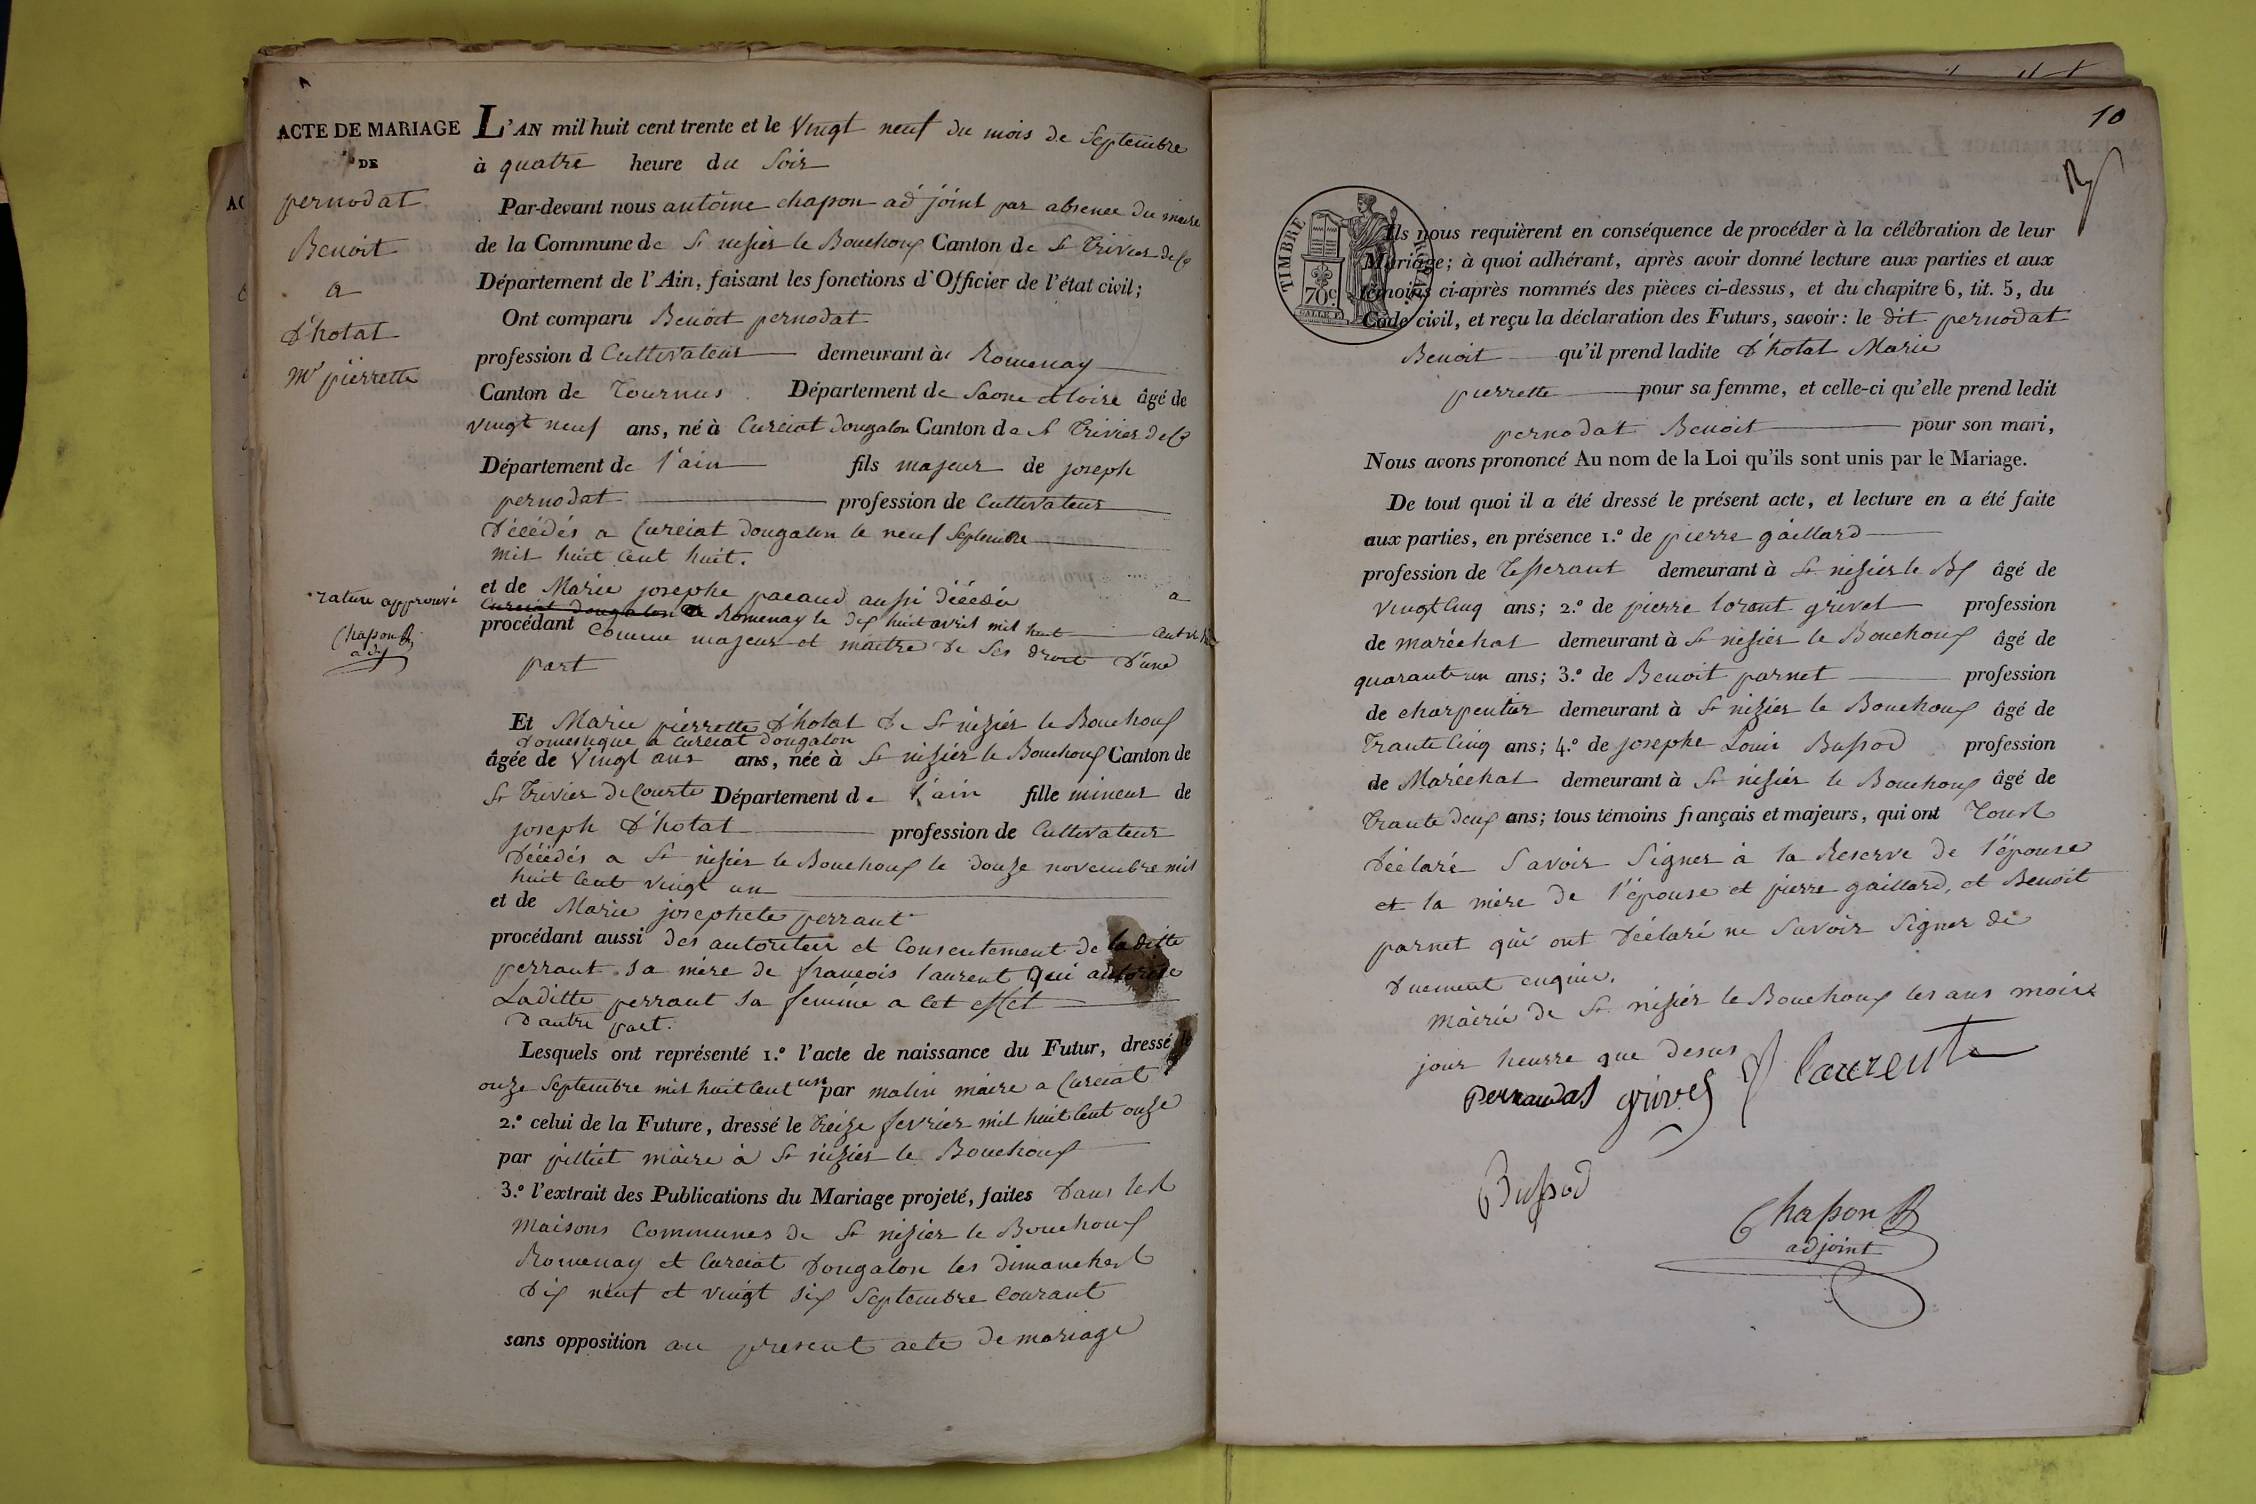 ACTE DE MARIAGE
DE
pernodat
Benoit
a
D'hotat
Me pierrette
rature approuvé
Chapon
adj
L'AN mil huit cent trente et le Vingt neuf du mois de Septembre
à quatre heure du Soir
Par-devant nous antoine chapon ad joint par absence du maire
de la Commune de St nisier le Bouchoux Canton de St Trivier de C
Département de l'Ain, faisant les fonctions d'Officier de l'état civil;
Ont comparu Benoit pernodat
profession d Cultivateur demeurant à Romenay
Canton de Tournus Département de Saone et loire âgé de
vingt neuf ans, né à Curciat dongalon Canton de St Trivier de C
Département de l'ain fils majeur de joseph
pernodat profession de Cultivateur
Décédés a Curciat dongalon le neuf Septembre
mil huit Cent huit.
et de Marie josephe pacaud aussi décédée a
Curciat dongalon Romenay le dix huit avril mil huit
procédant Comme majeur et maitre de Ses droit d'une
part
Et Marie pierrette D'hotat De St nizier le Bouchoux
domestique a Curciat dongalon
âgée de Vingt ans ans, née à St nizier le Bouchoux Canton de
St Trivier de Courte Département de l'ain fille mineur de
joseph D'hotat profession de Cultivateur
Décédés a St nisier le Bouchoux le douze novembre mil
huit Cent vingt un
et de Marie josephete perraut
procédant aussi des autoriteir et Consentement de laditte
perraut sa mère de françois laurent Qui autorise
Laditte perraut sa femme a Cet effet
D'autre part.
Lesquels ont représenté 1.º l'acte de naissance du Futur, dressé le
onze Septembre mil huit Cent un par malin maire a Curciat
2.º celui de la Future, dressé le treize fevrier mil huit Cent onze
par pilliet maire à St nizier le Bouchoux
3.º l'extrait des Publications du Mariage projeté, faites Dans les
maisons Communes de St nizier le Bouchoux
Romenay et Curciat Dongalon les dimanches
Dix neuf et vingt six Septembre Courant
sans opposition au present acte de mariage
10
TIMBRE ROYAL
70c
Ils nous requièrent en conséquence de procéder à la célébration de leur
Mariage; à quoi adhérant, après avoir donné lecture aux parties et aux
témoins ci-après nommés des pièces ci-dessus, et du chapitre 6, tit. 5, du
Code civil, et reçu la déclaration des Futurs, savoir: le dit pernodat
Benoit qu'il prend ladite D'hotat Marie
pierrette pour sa femme, et celle-ci qu'elle prend ledit
pernodat Benoit pour son mari,
Nous avons prononcé Au nom de la Loi qu'ils sont unis par le Mariage.
De tout quoi il a été dressé le présent acte, et lecture en a été faite
aux parties, en présence 1.º de pierre gaillard
profession de Tisserant demeurant à St nisier le Bx âgé de
vingt Cinq ans; 2.º de pierre lorant grivel profession
de maréchal demeurant à St nisier le Bouchoux âgé de
quarante un ans; 3.º de Benoit parnet profession
de charpentier demeurant à St nizier le Bouchoux âgé de
Trante Cinq ans; 4.º de josephe Louis Bussod profession
de Maréchal demeurant à St nisier le Bouchoux âgé de
Trante deux ans; tous témoins français et majeurs, qui ont Tous
Déclaré Savoir Signer à la Reserve de l'épouse
et la mère de l'épouse et pierre gaillard, et Benoit
parnet qui ont Déclaré ne Savoir Signer de
Duement enquis.
Mairie de St nisier le Bouchoux les ans mois
jour heurre que desus
Pernaudat grivel f laurent
Bussod
Chapon
adjoint